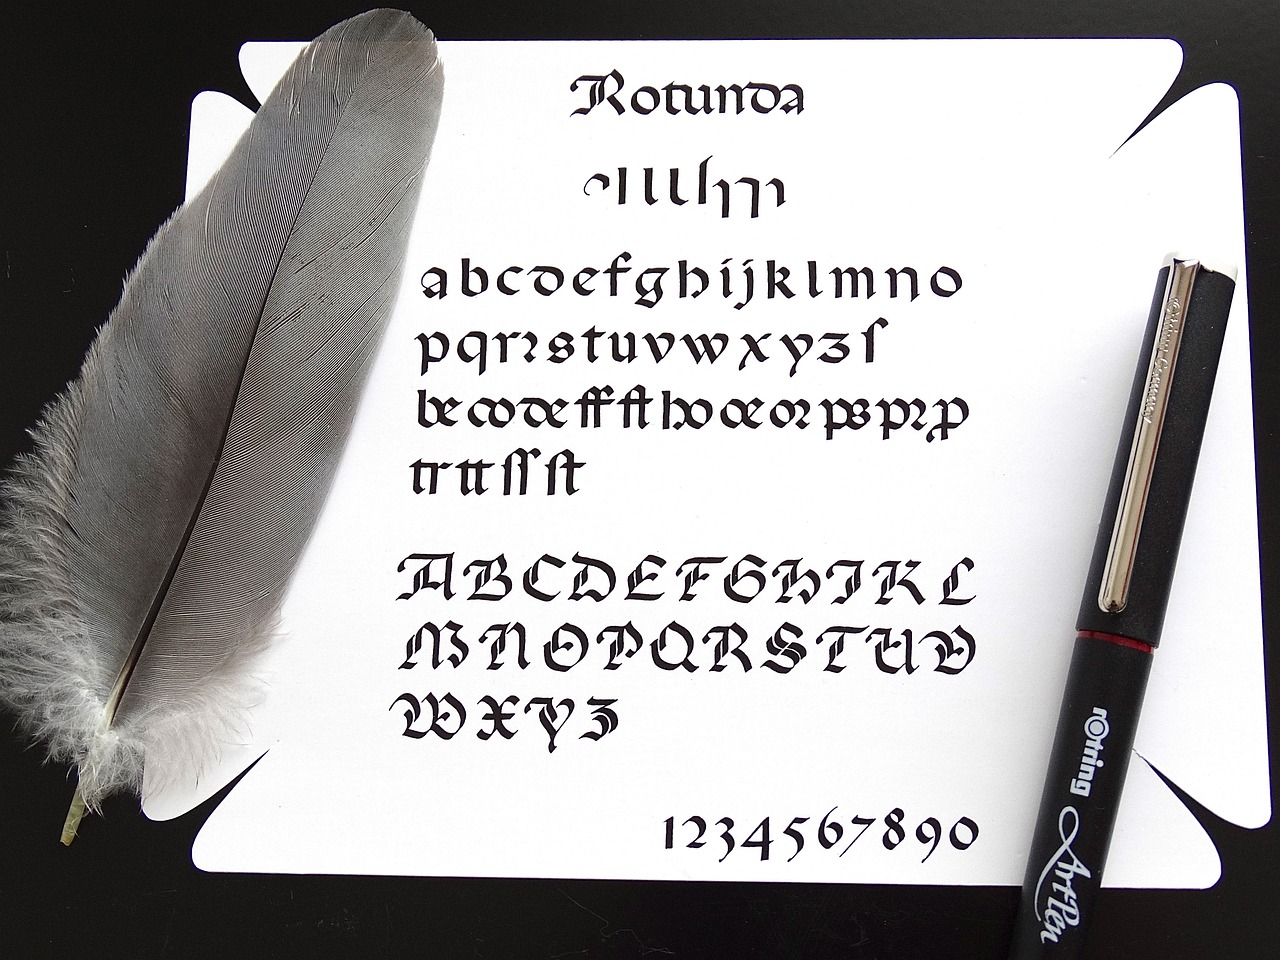 Rotunda
abcdefghijklmno
pqrꝛstuvwxyzſ
be co de ff ft ho oe oꝛ pp s pꝛ p
tr tt ſſ ſt
ABCDEFGHIKL
MNOPQRSTUV
WXYZ
1234567890
rOtring ArtPen